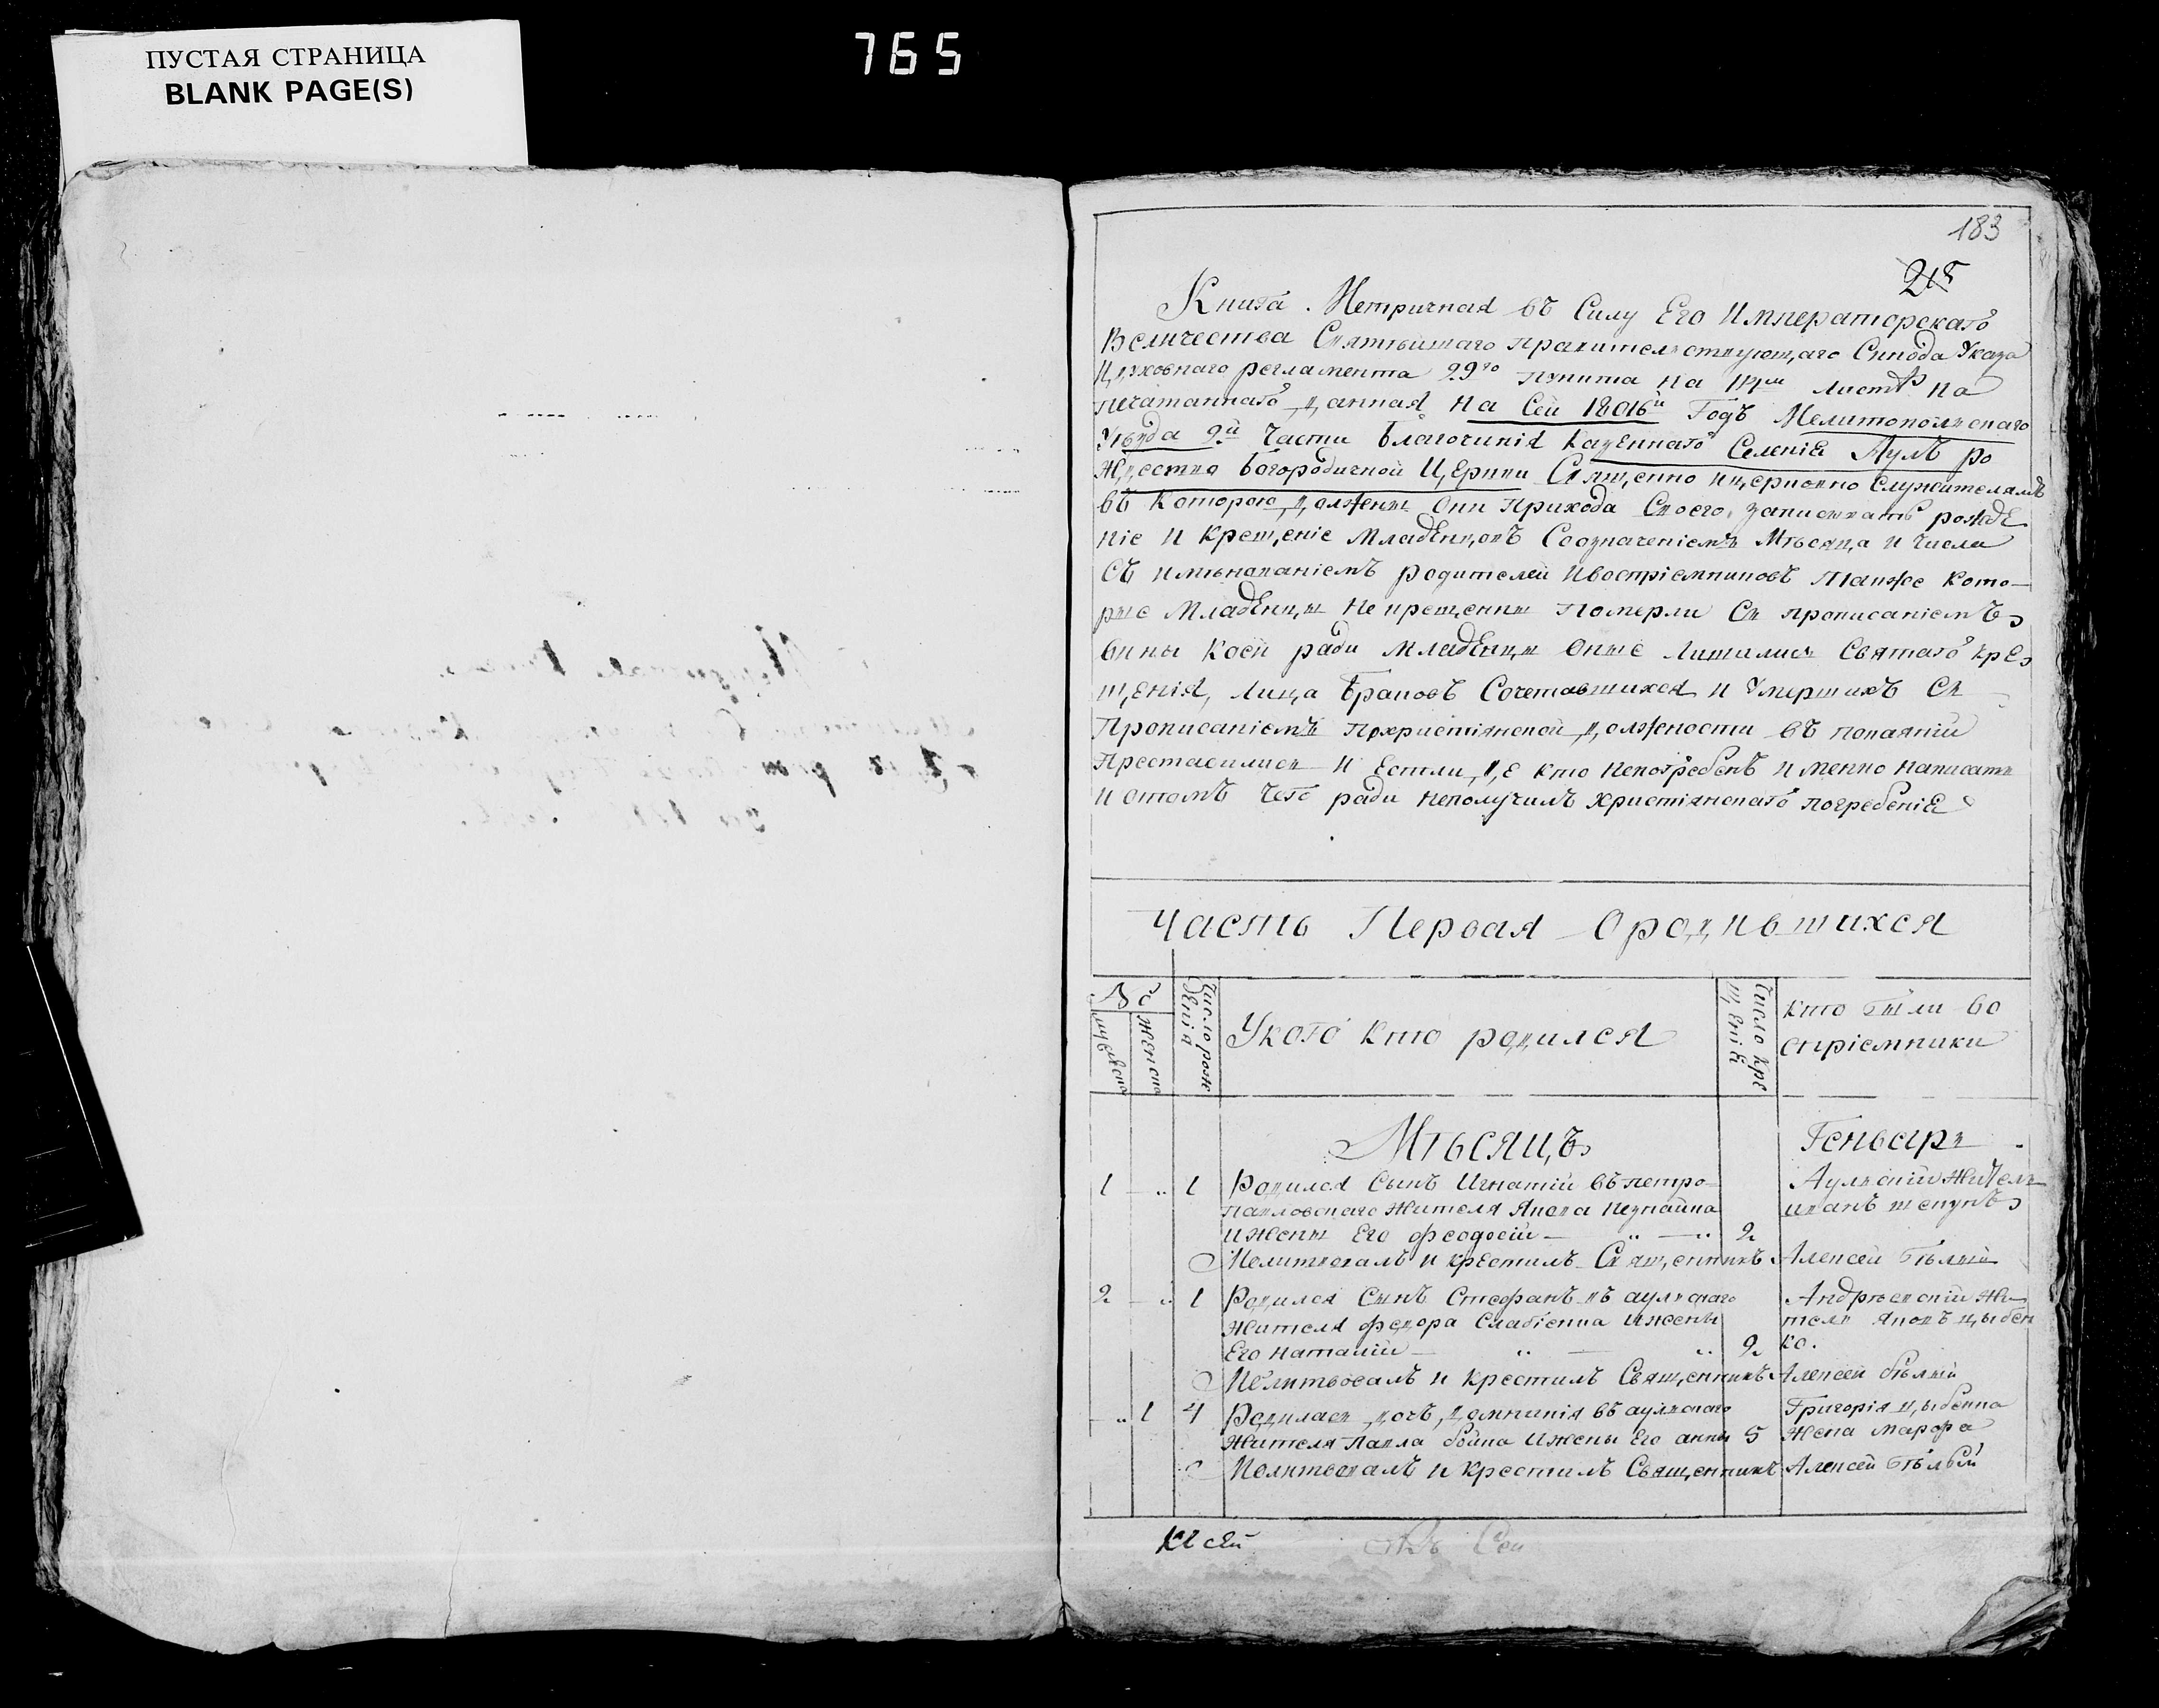 ПУСТАЯ СТРАНИЦА
BLANK PAGE(S)
765
183
218
Книга Метричная въ Силу Его Императорскаго
Величества Святѣйшаго правительствующаго Синода Указа
Церковнаго регламента 29го пункта на листѣ на
печатаннаго данная на Сей 18016й Годъ Мелитопольскаго
Уѣзда 2й Части благочинія казеннаго Селенія Аулъ ро
ждества богородичной Церкви Священно ицерковно Служителямъ
въ Которою должены Они Прихода Своего записывать рожде
ніе и Крещеніе Младенцовъ Созначеніемъ Мѣсяца и Числа
Съ имѣнованіемъ родителей Ивоспріемниковъ Также Кото-
рые Младенцы Не крещенны Померли Съ прописаніемъ
вины Коей ради младенцы Оные Лишились Святаго кре
щенія, Лица браковъ Сочетавшихся и Умершихъ Съ
Прописаніемъ Похристіянской должности въ покаяніи
Преставились и Естли, де кто Непогребенъ именно написать
и отомъ Чего ради неполучилъ христіянскаго погребенія
Часть Первая Ородившихся
№
мужеска
женска
Число рож
денія
Укого Кто родился
Число Кре
щенія
Кто были во
спріемники
Мѣсяцъ Геньварь
1 „ 1 Родился Сынъ Игнатій въ петро- Аульскій Житель
павловскаго Жителя Якова Незнайка иванъ шепунъ
ижены Его феодосіи 2
Молитвовалъ и крестилъ Священникъ Алексей Бѣлый
2 „ 1 Родился Сынъ Стефанъ въ аульскаго Андрѣевскій жи
Жителя федора Слабіенка ижены тель Яковъ цыбен
Его наталіи 2 ко.
Молитвовалъ и крестилъ Священникъ Алексей бѣлый
„ 1 4 Родилась дочь домникія въ аульскаго Григорія цыбенка
Жителя павла бойка ижены Его анны 5 Жена марфа
Молитвовалъ и крестилъ Священникъ Алексей бѣлый
Сей